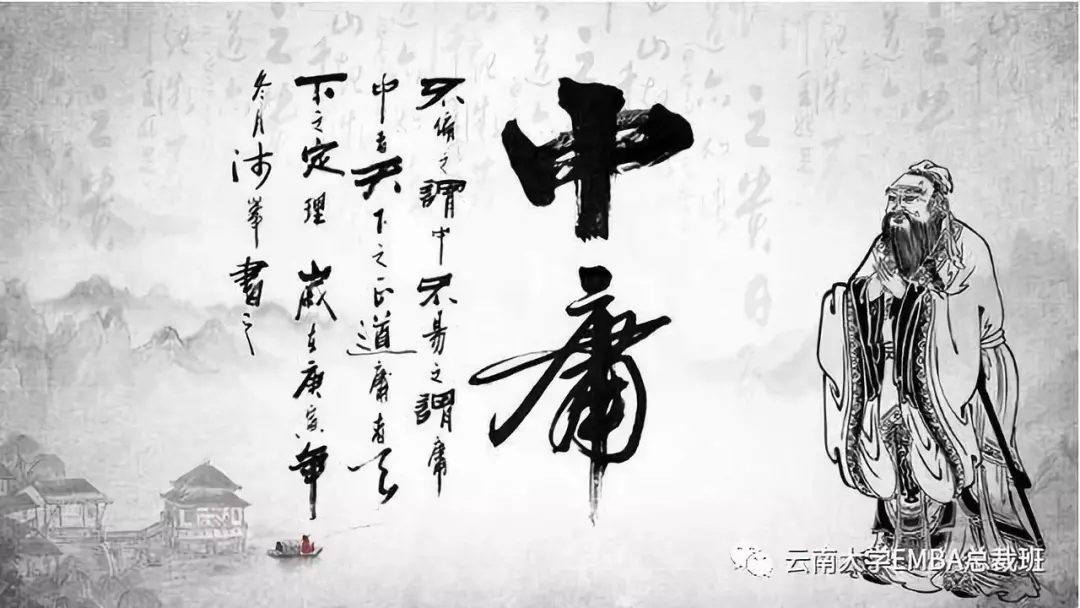 中庸
不偏之謂中不易之謂庸
中者天下之正道庸者天
下之定理 歲在庚寅年
冬月峯書之
云南大学EMBA总裁班